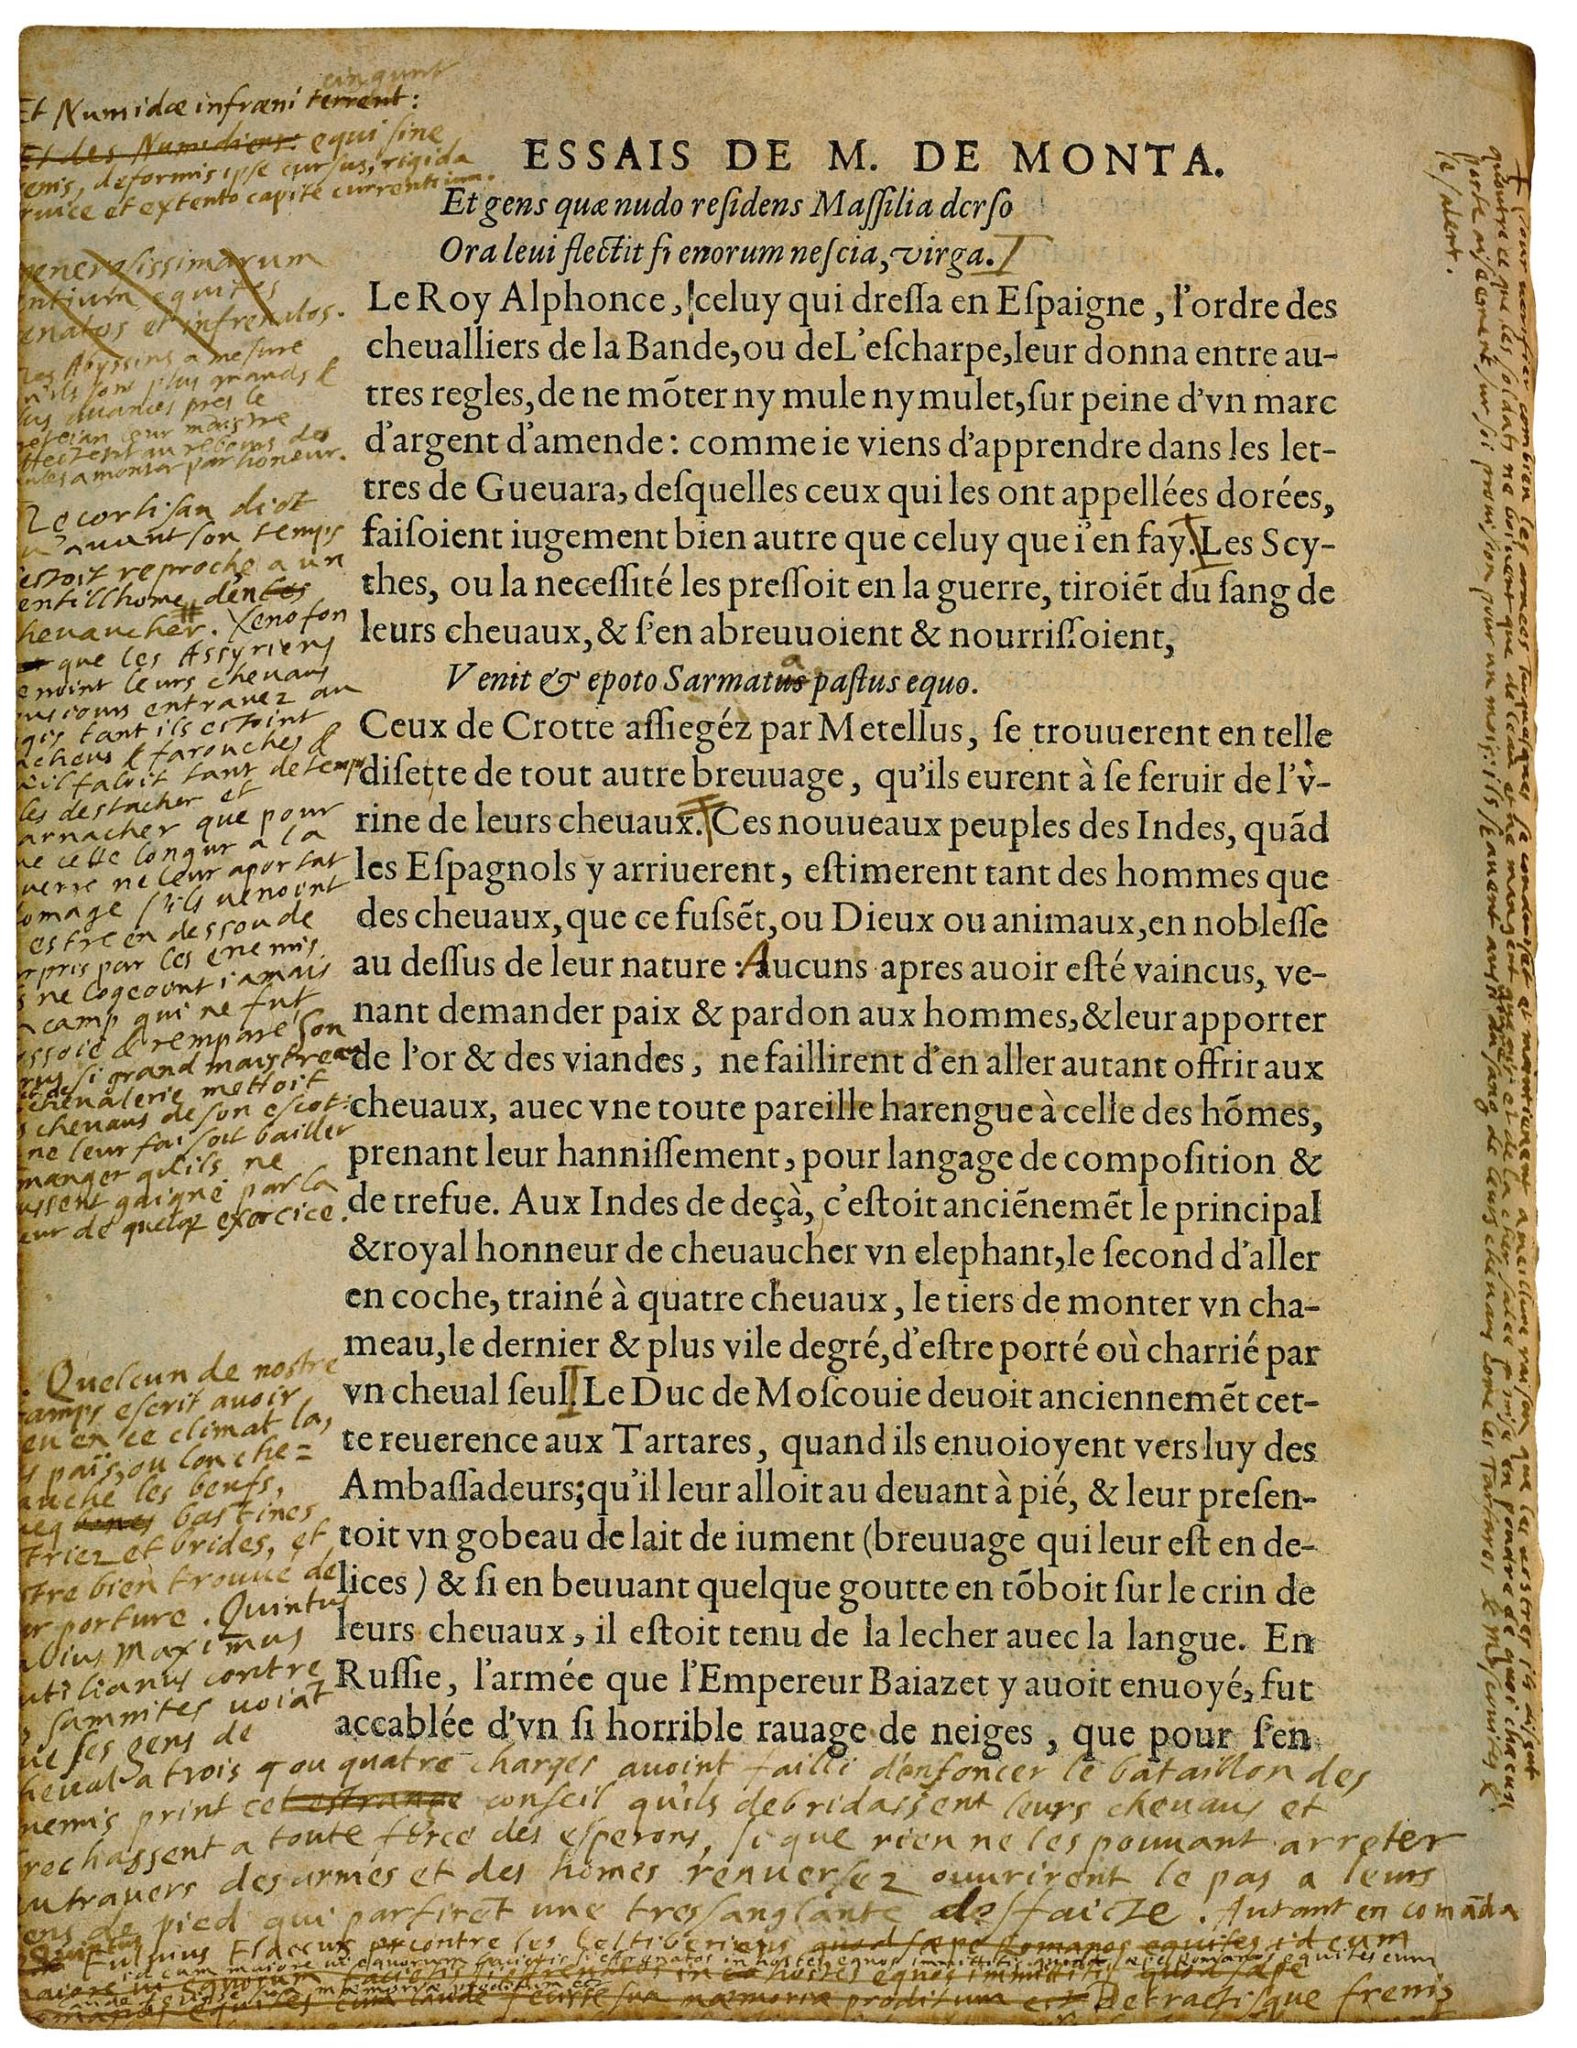 ESSAIS DE M. DE MONTA.
Et gens quæ nudo reſidens Maſſilia dorſo
Ora leui flectit frenorum neſcia, virga.
Le Roy Alphonce, celuy qui dreſſa en Eſpaigne, l'ordre des
cheualliers de la Bande, ou de L'eſcharpe, leur donna entre au-
tres regles, de ne mõter ny mule ny mulet, ſur peine d'vn marc
d'argent d'amende: comme ie viens d'apprendre dans les let-
tres de Gueuara, deſquelles ceux qui les ont appellées dorées,
faiſoient iugement bien autre que celuy que i'en fay. Les Scy-
thes, ou la neceſſité les preſſoit en la guerre, tiroiẽt du ſang de
leurs cheuaux, & ſ'en abreuuoient & nourriſſoient,
Venit & epoto Sarmata paſtus equo.
Ceux de Crotte aſſiegéz par Metellus, ſe trouuerent en telle
diſette de tout autre breuuage, qu'ils eurent à ſe ſeruir de l'v-
rine de leurs cheuaux. Ces nouueaux peuples des Indes, quãd
les Eſpagnols y arriuerent, eſtimerent tant des hommes que
des cheuaux, que ce fuſsẽt, ou Dieux ou animaux, en nobleſſe
au deſſus de leur nature: Aucuns apres auoir eſté vaincus, ve-
nant demander paix & pardon aux hommes, & leur apporter
de l'or & des viandes, ne faillirent d'en aller autant offrir aux
cheuaux, auec vne toute pareille harengue à celle des hõmes,
prenant leur hanniſſement, pour langage de compoſition &
de trefue. Aux Indes de deçà, c'eſtoit anciẽnemẽt le principal
& royal honneur de cheuaucher vn elephant, le ſecond d'aller
en coche, trainé à quatre cheuaux, le tiers de monter vn cha-
meau, le dernier & plus vile degré, d'eſtre porté où charrié par
vn cheual ſeul. Le Duc de Moſcouie deuoit anciennemẽt cet-
te reuerence aux Tartares, quand ils enuoioyent vers luy des
Ambaſſadeurs; qu'il leur alloit au deuant à pié, & leur preſen-
toit vn gobeau de lait de iument (breuuage qui leur eſt en de-
lices) & ſi en beuuant quelque goutte en tõboit ſur le crin de
leurs cheuaux, il eſtoit tenu de la lecher auec la langue. En
Ruſſie, l'armée que l'Empereur Baiazet y auoit enuoyé, fut
accablée d'vn ſi horrible rauage de neiges, que pour ſ'en
cingunt
Et Numidæ infræni terrent:
Et des Numidiens equi sine
renis, deformis ipse cursus, rigida
ruice et extento capite currentium.
generosissimarum
ntium equites
enatos et infrenatos.
Les Abyssins a mesure
qu'ils sont plus grands &
us auances pres le
leur maistre
des
mules a monter par honeur.
Le cortisan dict
qu'auant son temps
estoit reproche a un
entilhome den
heuaucher. Xenofon
que les Assyriens
leurs cheuaus
entrauez au
gis tant ils estoint
acheus & farouches &
qu'il faloit tant de temps
les destacher et
arnacher que pour
ue cette longur a la
uerre ne leur aportat
omage s'ils uenoint
estre en dessoude
rpris par les enemis
s ne logeoint iamais
n camp qui ne fut
ossoié & remparé son
rus si grand maistre en
cheualerie mettoit
s cheuaus de son escot:
ne leur faisoit bailler
manger qu'ils ne
ussent gaigne par la
eur de quelq exercice.
Quelcun de nostre
amps escrit auoir
eu en ce climat la,
s païs, ou lon che=
auche les beufs,
ueq bastines
triez et brides, et
stre bien trouué de
ur porture. Quintus
abius Maximus
utilianus contre
s Samnites uoiãt
ue ses gens de
heual a trois ou quatre charges auoint failli d'enfoncer le bataillon des
nemis print cet estrange conseil qu'ils debridassent leurs cheuaus et
rechassent a toute force des esperons, si que rien ne les pouuant arreter
utrauers des armes et des homes renuersez ouurirent le pas a leurs
ens de pied qui parfirẽt une tressanglante desfaicte. Autant en comãda
Quintus Fuluius Flaccus contre les Celtiberiens quod sæpe Romanos equites id cum
id cum maiore ui equorum
Detractisque frenis
+ Pour uerifier combien les armees Turquesques se conduisent et maintienent a meillure raison que les nostres
qu'outre ce que les soldats ne boiuent que de l'eau et ne mangent que ris et de la chair salée mise en poudre de quoi chacun
porte aiseemẽt sur si prouision pour un mois; ils sçauent aussi du sang de leurs cheuaus come les Tartares &
le salent.